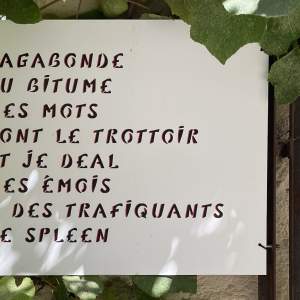 AGABONDE
U BITUME
ES MOTS
ONT LE TROTTOIR
T JE DEAL
ES ÉMOIS
DES TRAFIQUANTS
E SPLEEN